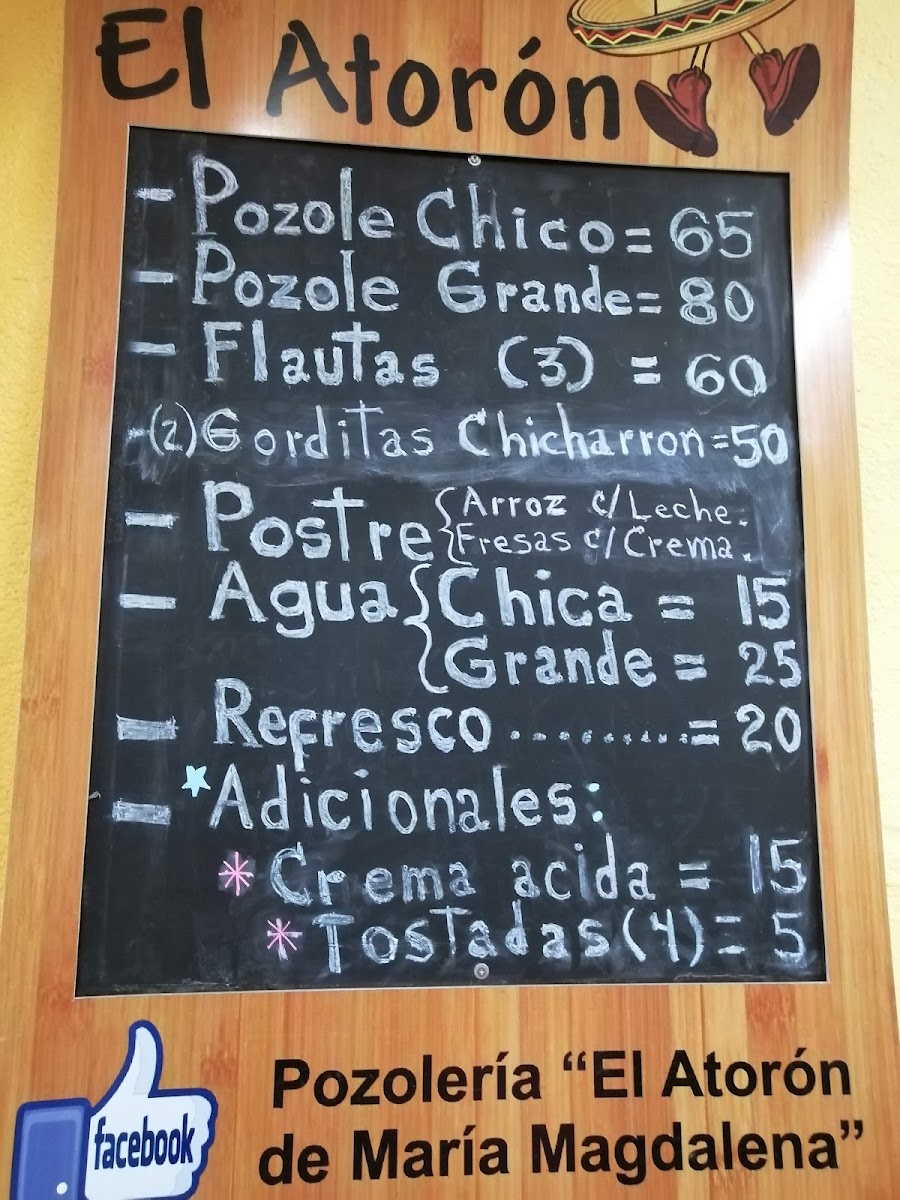 El Atorón
- Pozole Chico = 65
- Pozole Grande = 80
- Flautas (3) = 60
- (2) Gorditas Chicharron = 50
- Postre { Arroz c/Leche.
Fresas c/Crema.
- Agua { Chica = 15
Grande = 25
- Refresco ......... = 20
- *Adicionales:
* Crema acida = 15
* Tostadas (4) = 5
facebook
Pozolería “El Atorón
de María Magdalena”